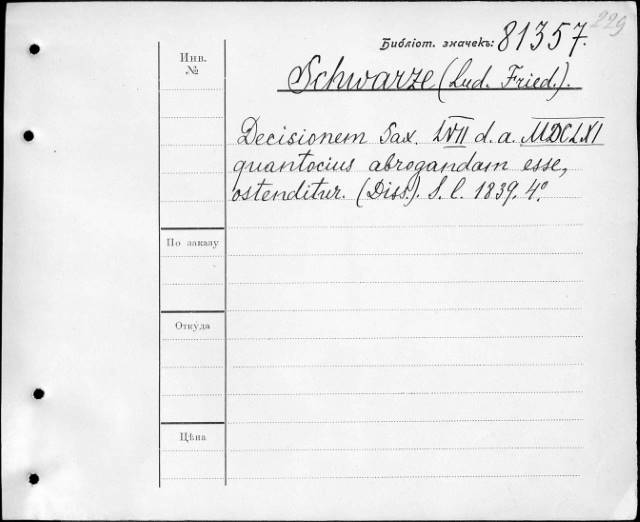 229
Библіот. значекъ: 81357.
Инв. №
Schwarze (Lud. Fried.).
Decisionem Sax. LVII d. a. MDCLXI
quantocius abrogandam esse,
ostenditur. (Diss.). S. l. 1839. 4º.
По заказу
Откуда
Цѣна